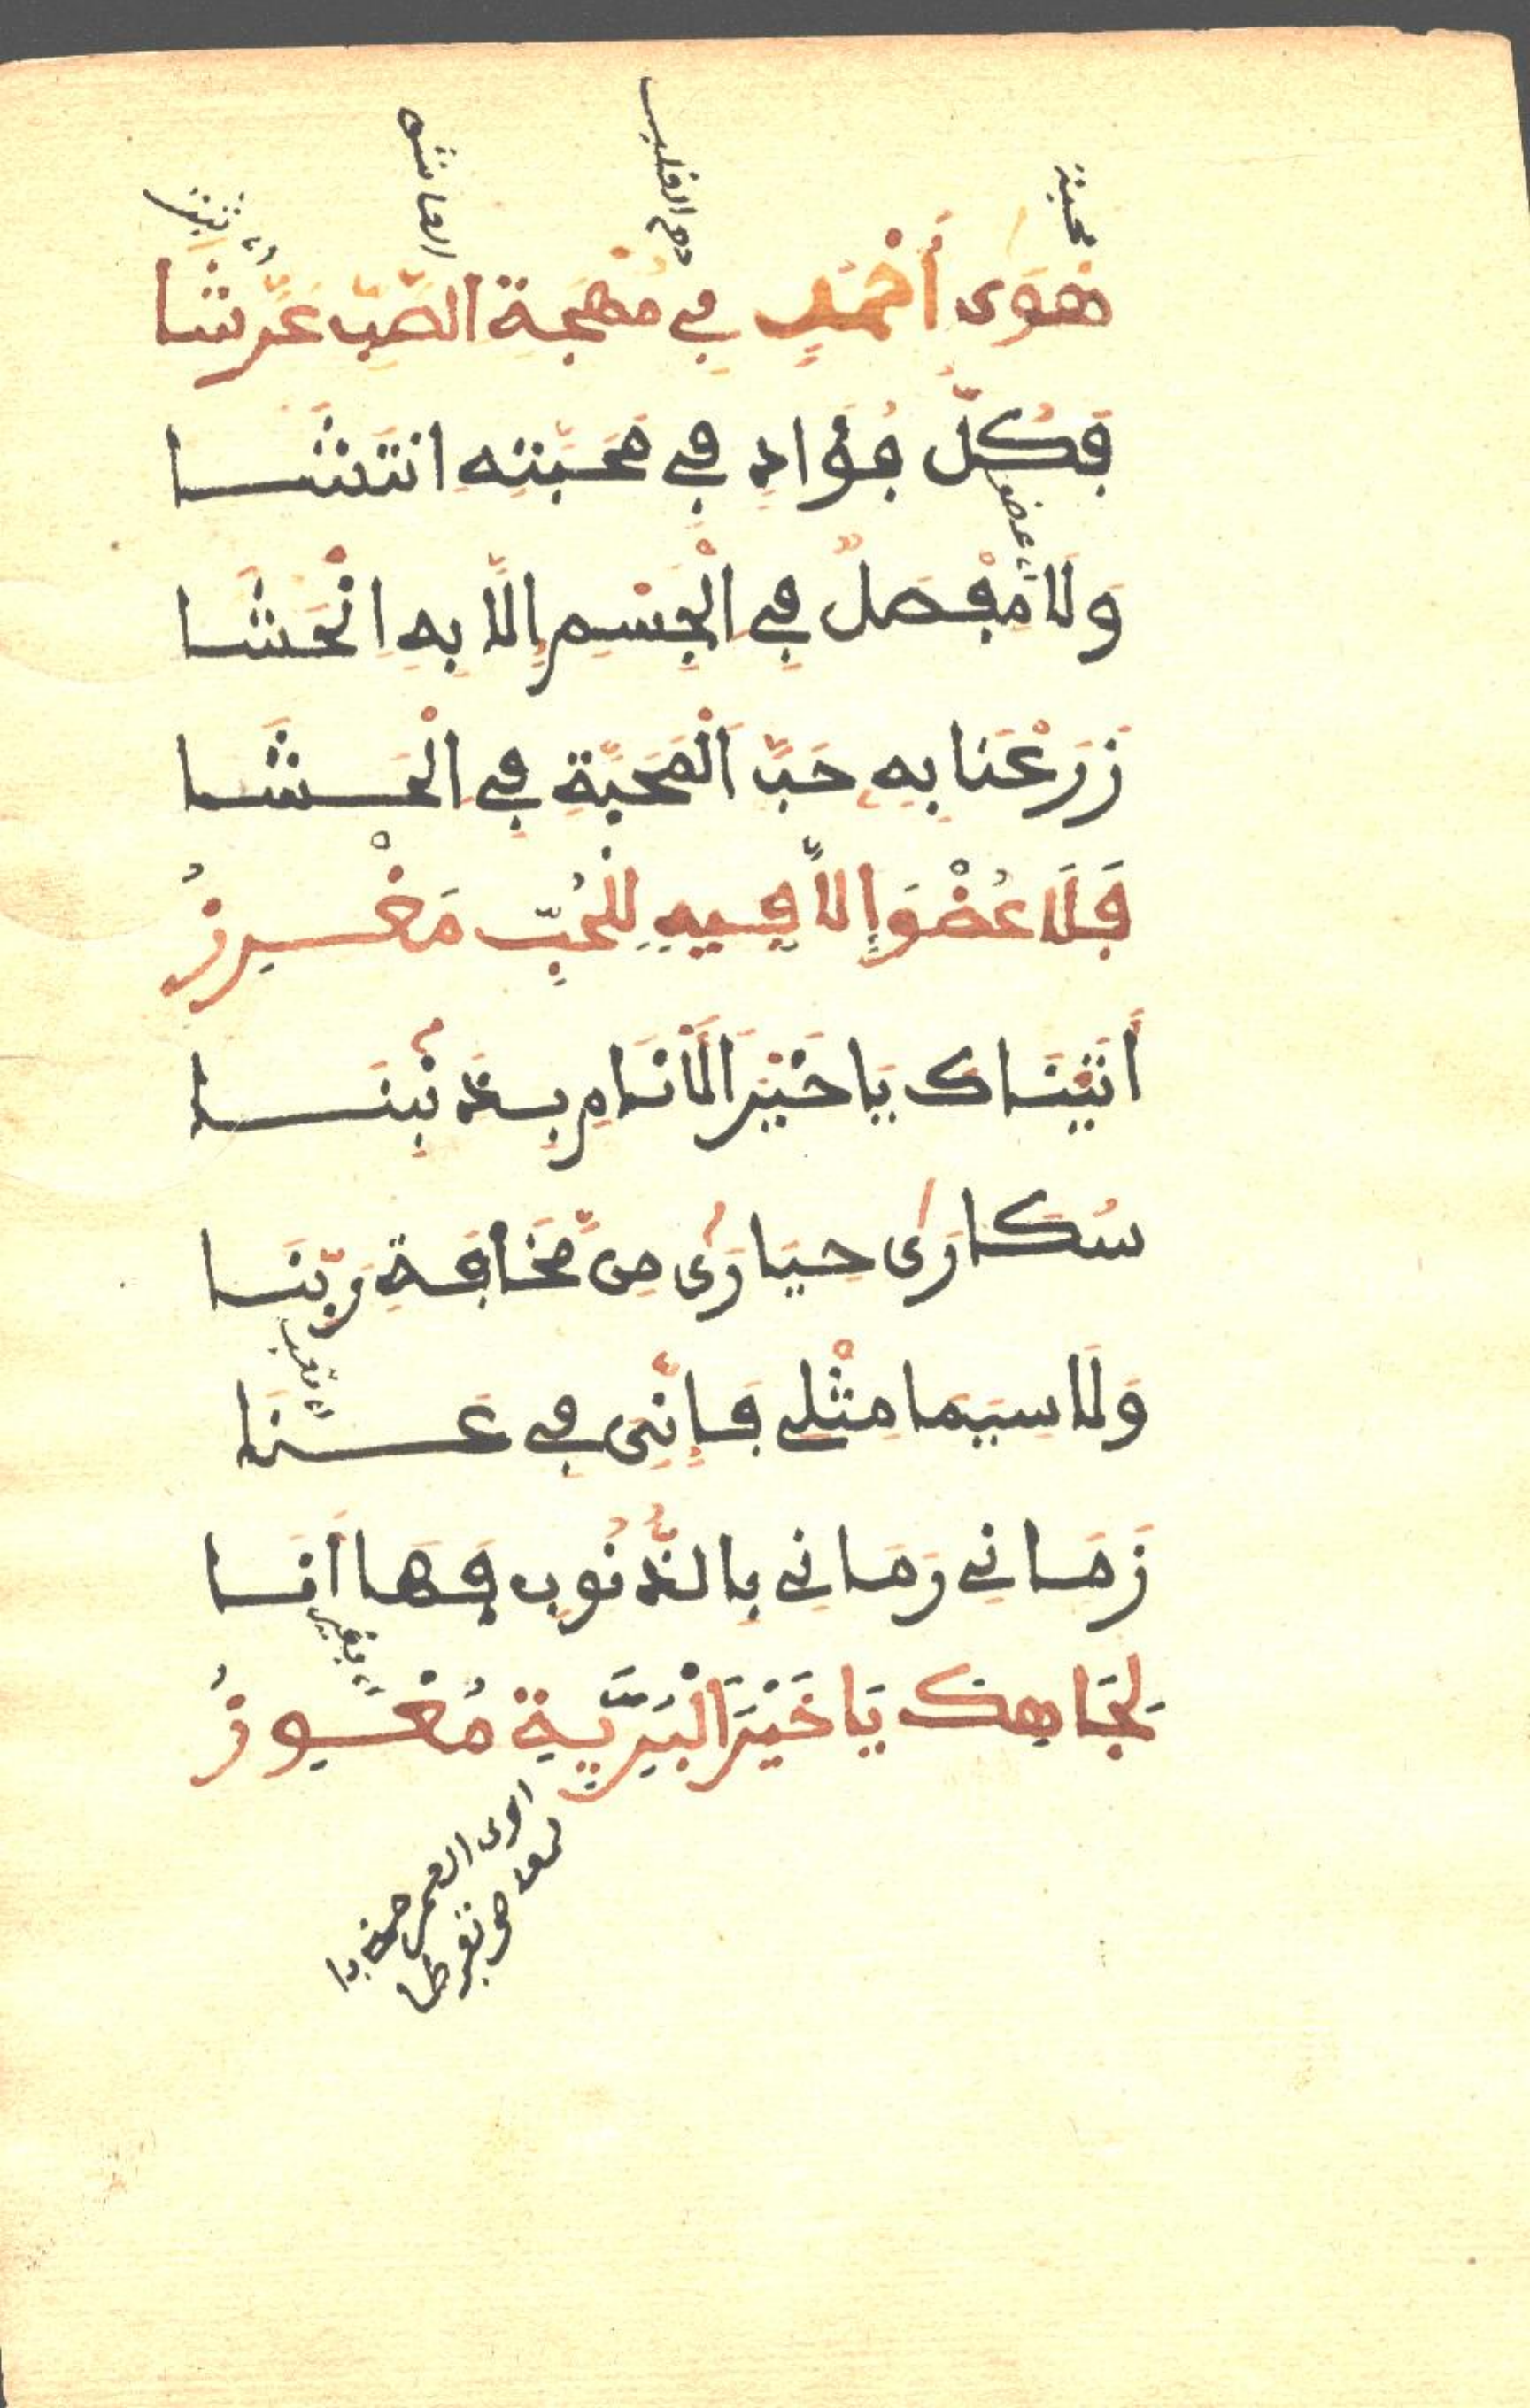 محبة
دم القلب
العاشق
اي ثبت
هَوَى أَحْمَدٍ فِي مُهْجَةِ الصَّبِّ عَرَّشَا
فَكُلُّ فُؤَادٍ فِي مَحَبَّتِهِ انْتَشَا
عضو
وَلَا مَفْصِلٌ فِي الْجِسْمِ إِلَّا بِهِ انْحَشَا
زَرَعْنَا بِهِ حَبَّ الْمَحَبَّةِ فِي الْحَشَا
فَلَا عُضْوَ إِلَّا فِيهِ لِلْحُبِّ مَغْرِزُ
أَتَيْنَاكَ يَا خَيْرَ الْأَنَامِ بِذَنْبِنَا
سُكَارَى حَيَارَى مِن مَّخَافَةِ رَبِّنَا
اي تعب
وَلَا سِيَمَا مِثْلِي فَإِنِّي فِي عَنَا
زَمَانِي رَمَانِي بِالذُّنُوبِ فَهَا أَنَا
اي فقير
لِجَاهِكَ يَا خَيْرَ الْبَرِيَّةِ مُعْوِزُ
العمر